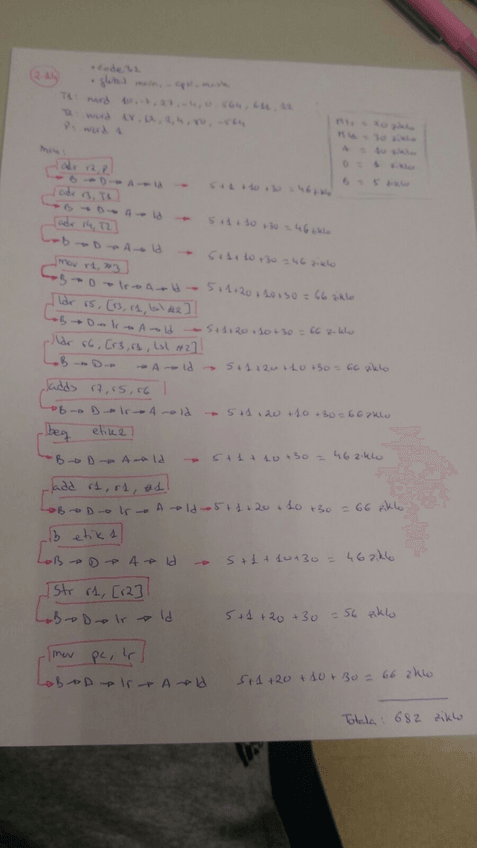 2.14
• code 32
• global main, __cpsr_mask
T1: word 10, -2, 27, -4, 0, 564,
T2: word
P: word 1
= 20 ziklo
= 30 ziklo
A = 10 ziklo
D = 1 ziklo
B = 5 ziklo
main:
adr r2, P
B → D → A → Id → 5+1+10+30 = 46 ziklo
adr r3, T1
B → D → A → Id → 5+1+10+30 = 46 ziklo
adr r4, T2
B → D → A → Id → 5+1+10+30 = 46 ziklo
mov r1, #3
B → D → Ir → A → Id → 5+1+20+10+30 = 66 ziklo
ldr r5, [r3, r1, lsl #2]
B → D → Ir → A → Id → 5+1+20+10+30 = 66 ziklo
ldr r6, [r3, r1, lsl #2]
B → D → → A → Id → 5+1+20+10+30 = 66 ziklo
adds r7, r5, r6
B → D → Ir → A → Id → 5+1+20+10+30 = 66 ziklo
beq etik2
B → D → A → Id → 5+1+10+30 = 46 ziklo
add r1, r1, #1
B → D → Ir → A → Id → 5+1+20+10+30 = 66 ziklo
B etik1
B → D → A → Id → 5+1+10+30 = 46 ziklo
str r1, [r2]
B → D → Ir → Id 5+1+20+30 = 56 ziklo
mov pc, lr
B → D → Ir → A → Id 5+1+20+10+30 = 66 ziklo
Totala: 682 ziklo